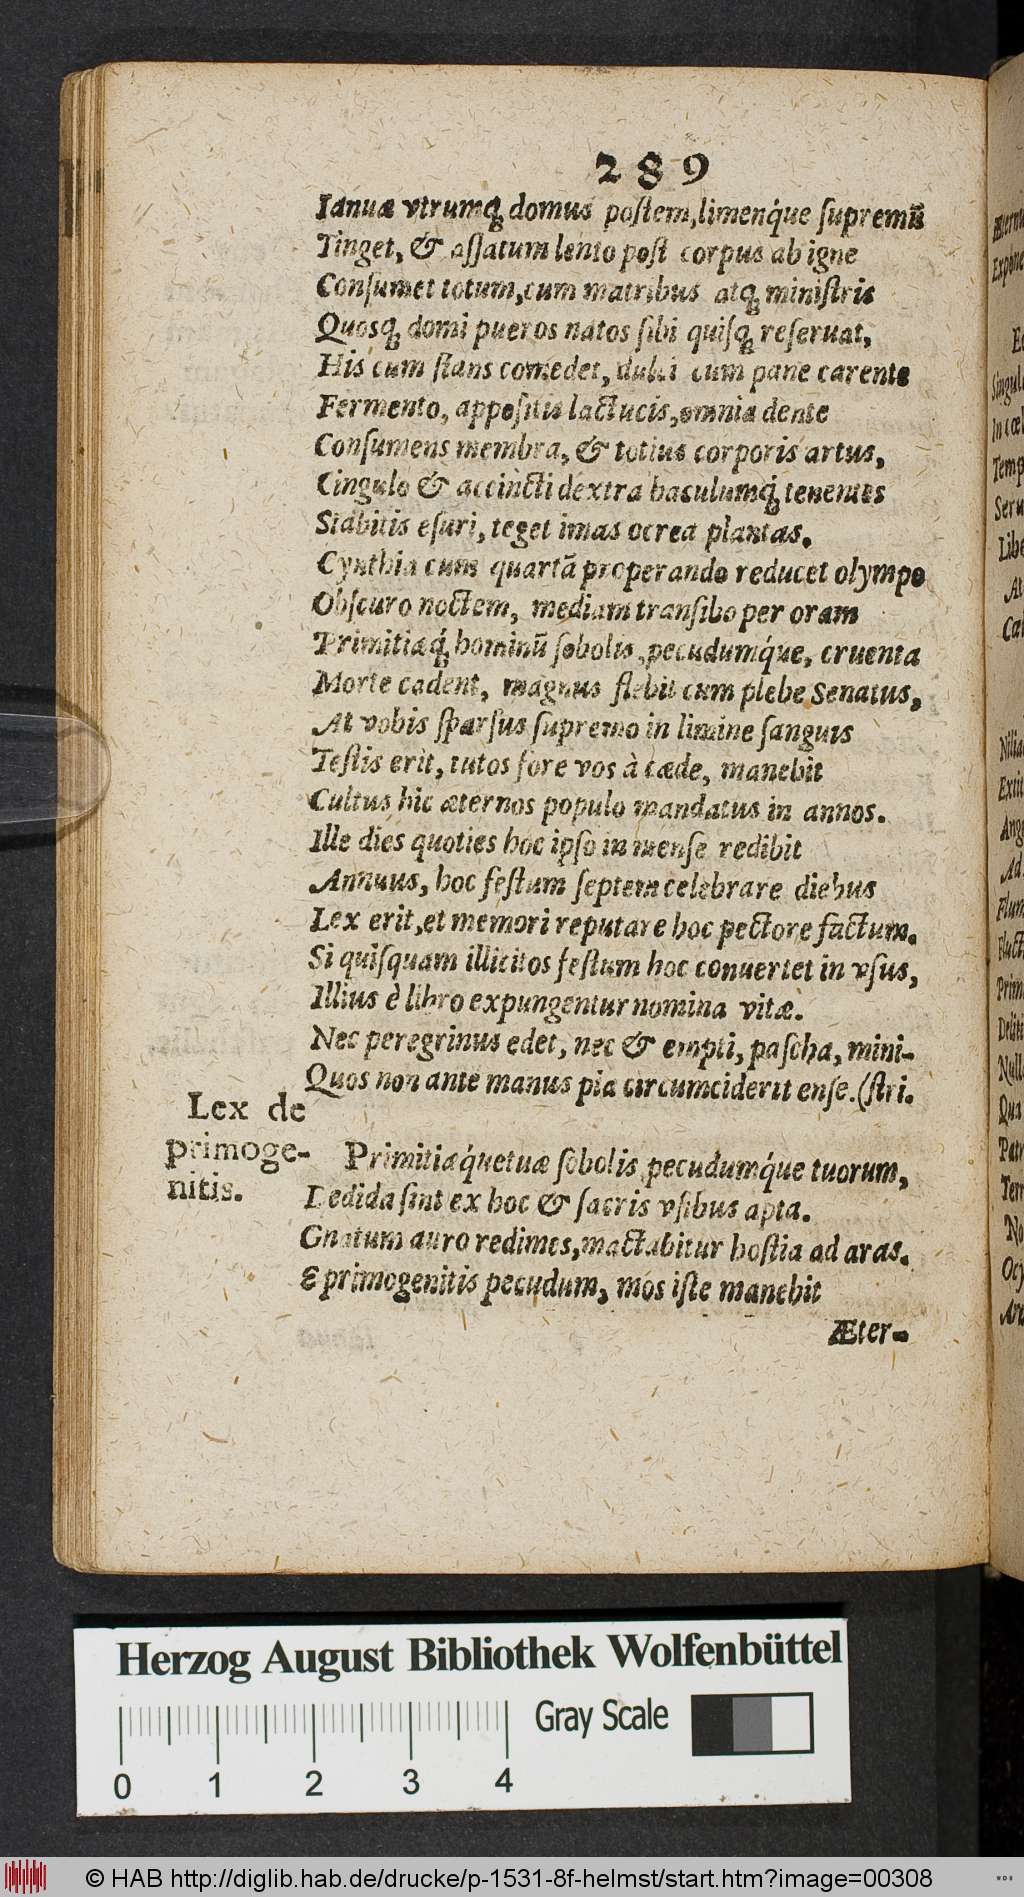 289
Ianuæ vtrumq́; domus postem, limenq́ue supremū
Tinget, & assatum lento post corpus ab igne
Consumet totum, cum matribus atq; ministris
Quosq; domi pueros natos sibi quisq; reseruat,
His cum stans comedet, dulci cum pane carente
Fermento, appositis lactucis, omnia dente
Consumens membra, & totius corporis artus,
Cingulo & accincti dextra baculumq́; tenentes
Stabitis esuri, teget imas ocrea plantas.
Cynthia cum quartā properando reducet olympo
Obscuro noctem, mediam transibo per oram
Primitiæq́; hominū sobolis, pecudumq́ue, cruenta
Morte cadent, magnus flebit cum plebe Senatus,
At vobis sparsus supremo in limine sanguis
Testis erit, tutos fore vos à cæde, manebit
Cultus hic æternos populo mandatus in annos.
Ille dies quoties hoc ipso in mense redibit
Annuus, hoc festum septem celebrare diebus
Lex erit, et memori reputare hoc pectore factum.
Si quisquam illicitos festum hoc conuertet in vsus,
Illius è libro expungentur nomina vitæ.
Nec peregrinus edet, nec & empti, pascha, mini-
Quos non ante manus pia circumciderit ense. (stri.
Lex de
primoge-
nitis.
Primitiæq́ue tuæ sobolis pecudumq́ue tuorum,
Dedida sint ex hoc & sacris vsibus apta.
Gnatum auro redimes, mactabitur hostia ad aras.
E primogenitis pecudum, mos iste manebit
Æter-
Herzog August Bibliothek Wolfenbüttel
Gray Scale
0 1 2 3 4
© HAB http://diglib.hab.de/drucke/p-1531-8f-helmst/start.htm?image=00308